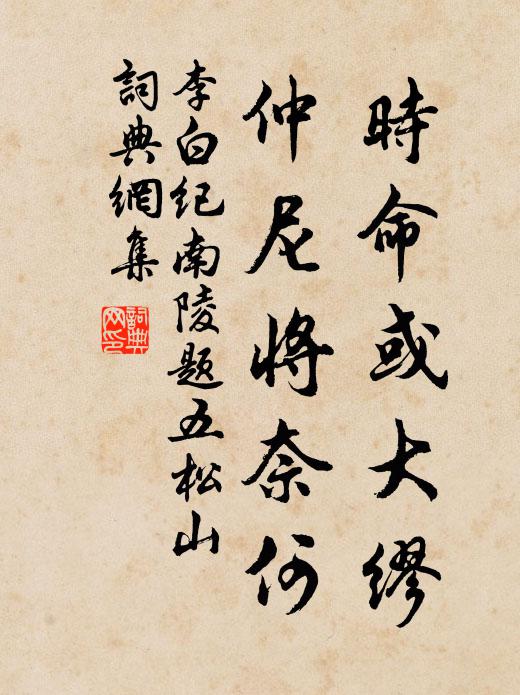 時命或大繆
仲尼將奈何
李白纪南陵题五松山
詞典網集
詞典网印